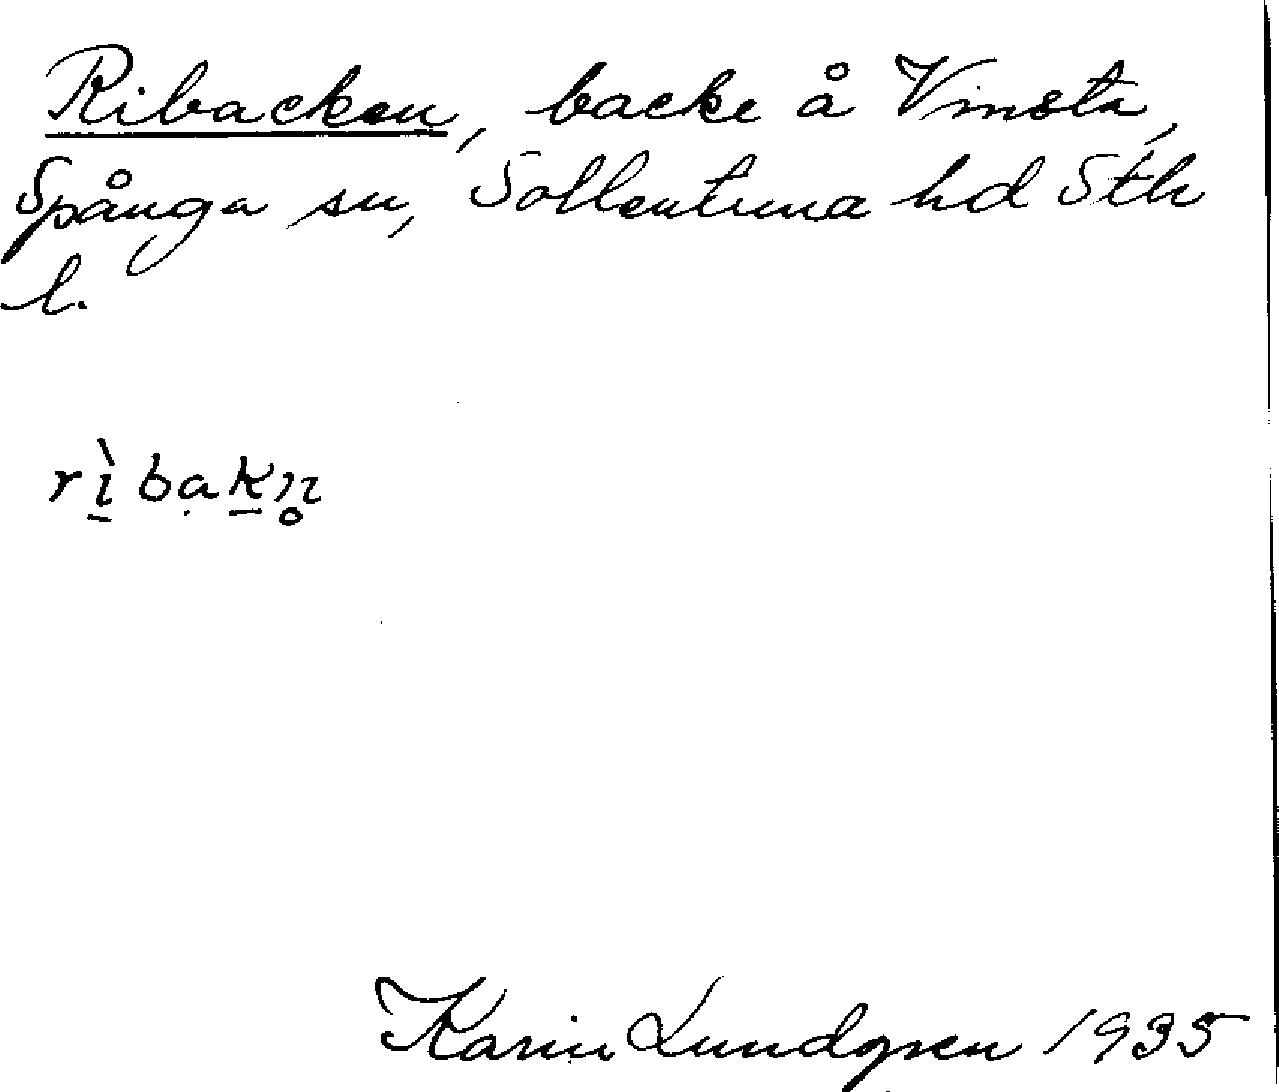 Ribacken, backe å Vinsta,
Spånga sn, Sollentuna hd Sth
l.
rì̠bạk̠n̥
Karin Lundgren 1935